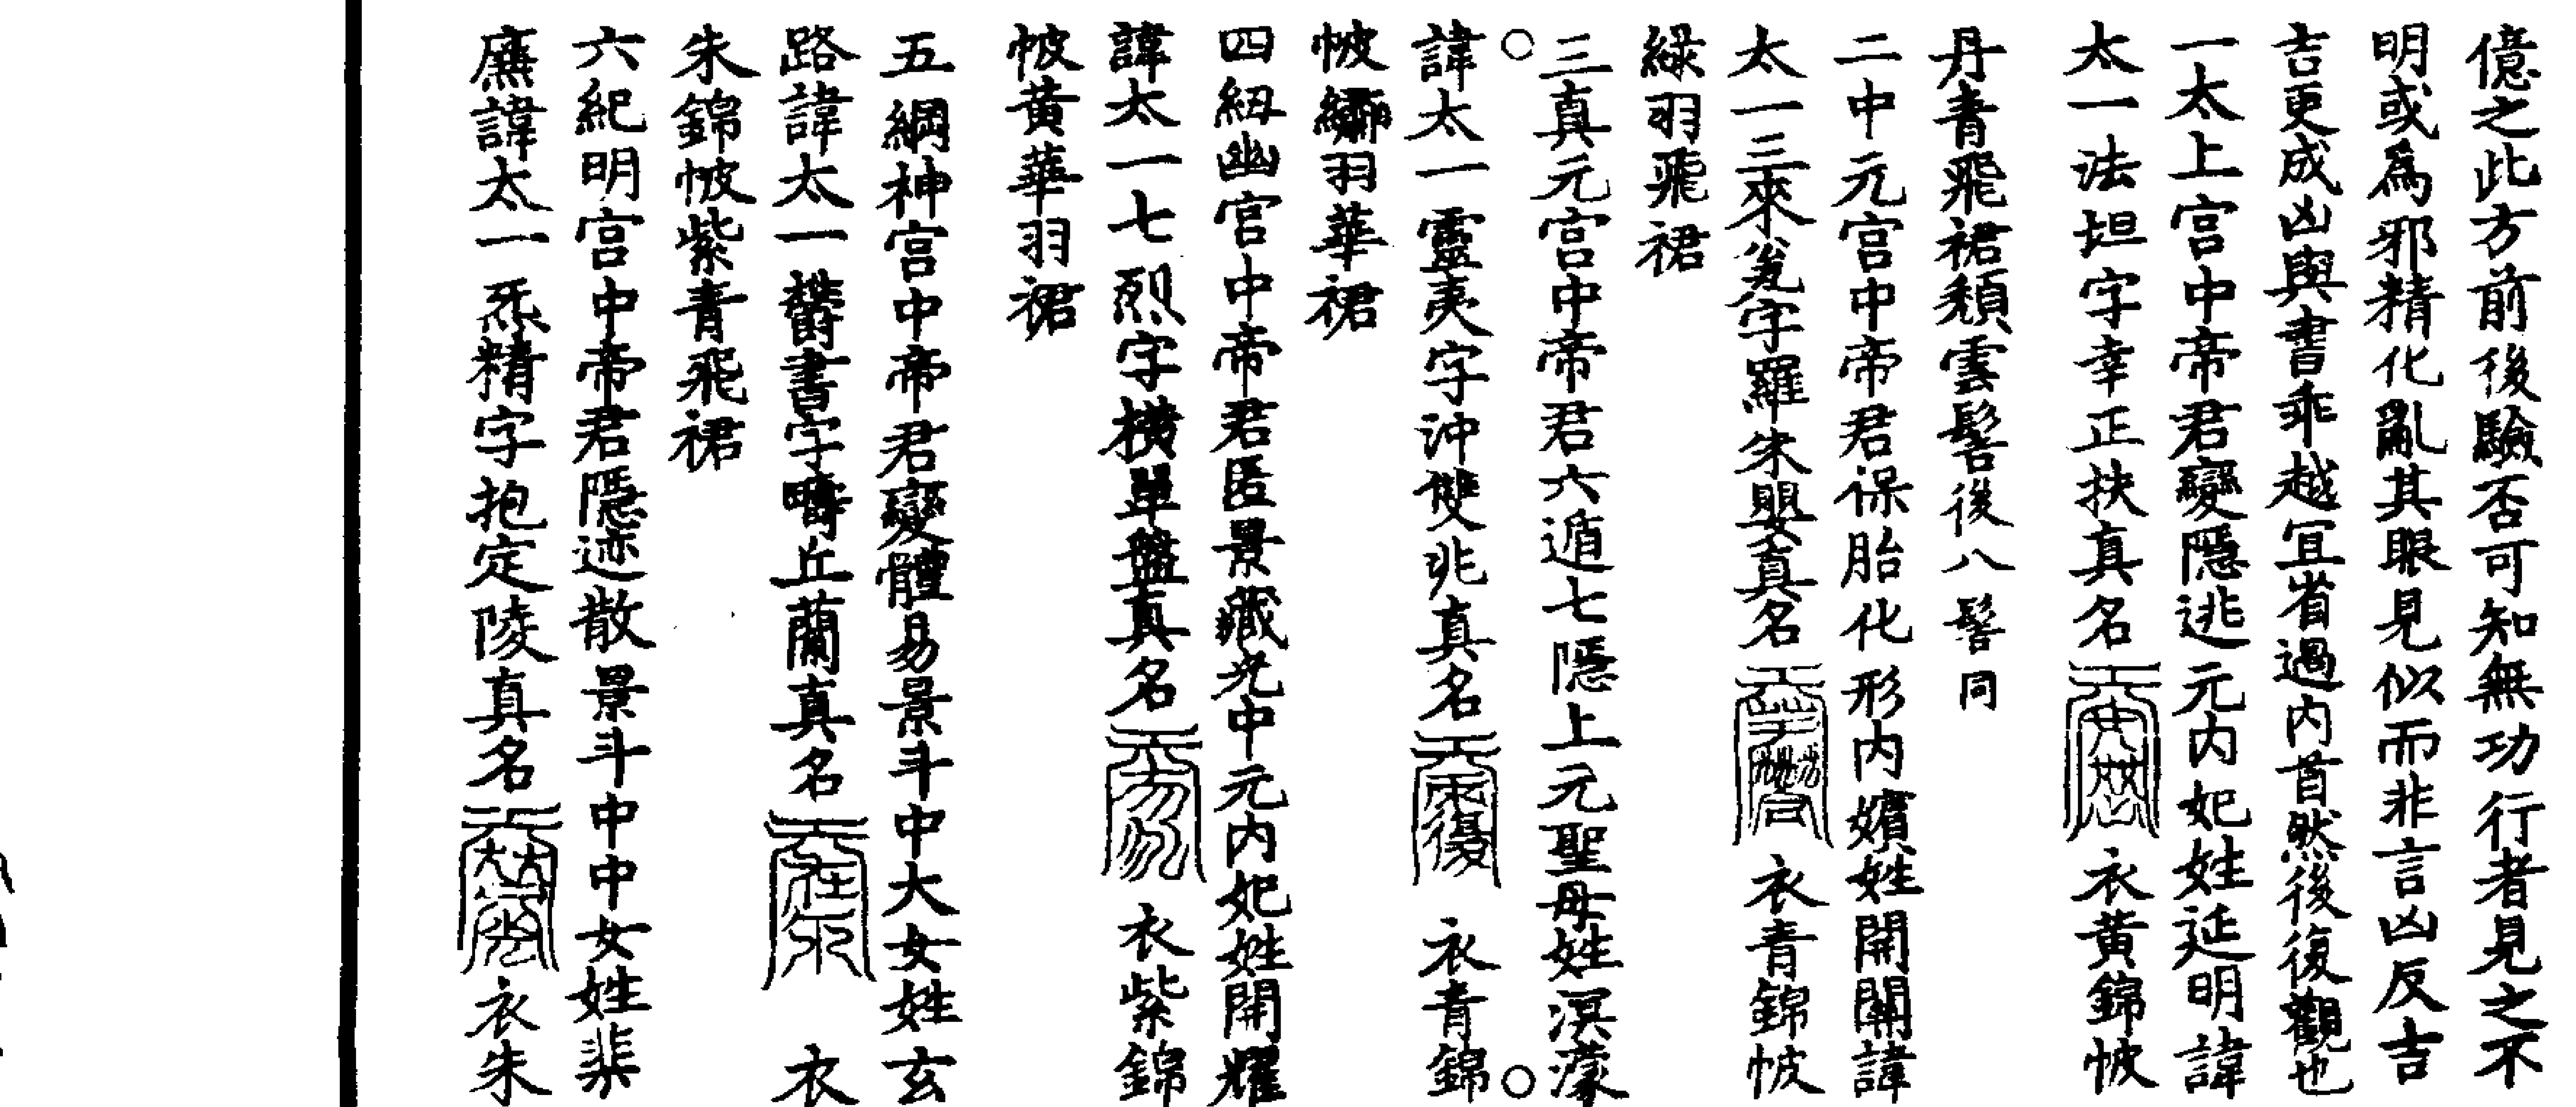 億之此方前後驗否可知無功行者見之不
明或為邪精化亂其眼見似而非言凶反吉
吉更成凶與書乖越宜省過內首然後復觀也
一太上宮中帝君變隱逃元內妃姓延明諱
太一法坦字幸正扶真名 衣黃錦帔
丹青飛裙頹雲髻後八髻同
二中元宮中帝君保胎化形內嬪姓開闢諱
太一三來字羅朱嬰真名 衣青錦帔
綠羽飛裙
三真元宮中帝君六遁七隱上元聖母姓溟濛
諱太一靈夷字沖雙非真名 衣青錦
帔繡羽華裙
四紐幽宮中帝君匿景藏光中元內妃姓開耀
諱太一七烈字橫單盤真名 衣紫錦
帔黃華羽裙
五綱神宮中帝君變體易景斗中大女姓玄
路諱太一欝書字疇丘蘭真名 衣
朱錦帔紫青飛裙
六紀明宮中帝君隱迹散景斗中中女姓婓
廡諱太一炁精字抱定陵真名 衣朱